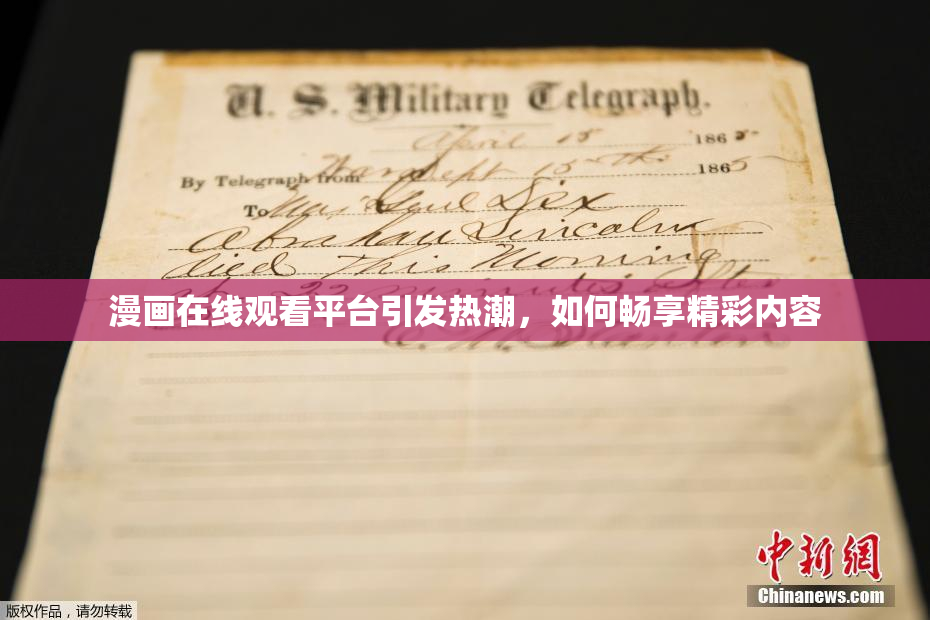 U. S. Military Telegraph.
April 15 1865
By Telegraph from War Dept 15th 1865
To Maj Genl Dix
Abraham Lincoln
died This Morning
at 22 minutes after
漫画在线观看平台引发热潮，如何畅享精彩内容
E. M. Stanton
中新网
Chinanews.com
版权作品，请勿转载